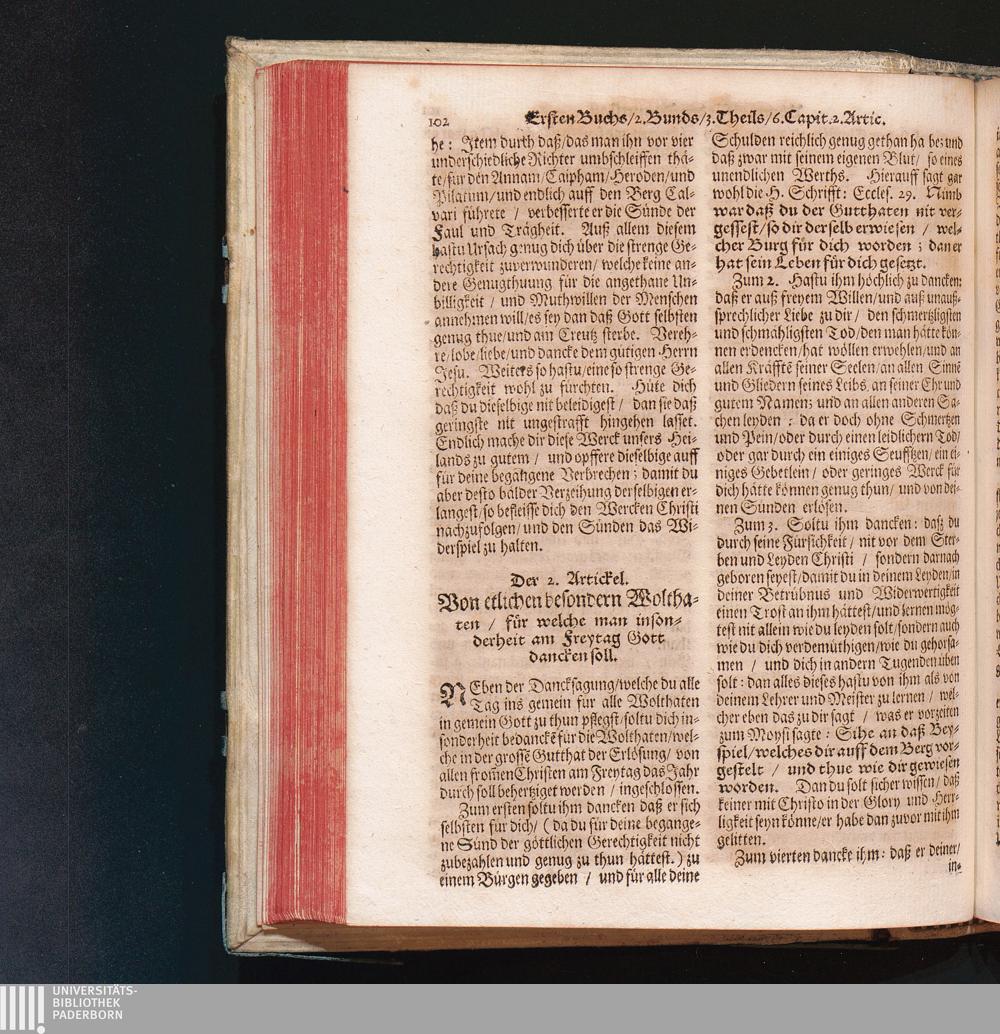 102
Ersten Buchs/2. Bunds/3. Theils/6. Capit. 2. Artic.
he: Item durch daß/das man ihn vor vier
underschiedliche Richter umbschleiffen thä-
te/für den Annam/Caipham/Heroden/und
Pilatum/und endlich auff den Berg Cal-
vari führete / verbesserte er die Sünde der
Faul und Trägheit. Auß allem diesem
hastu Ursach genug dich über die strenge Ge-
rechtigkeit zuverwunderen/welche keine an-
dere Genugthuung für die angethane Un-
billigkeit / und Muthwillen der Menschen
annehmen will/es sey dan daß Gott selbsten
genug thue/und am Creutz sterbe. Vereh-
re/lobe/liebe/und dancke dem gütigen Herrn
Jesu. Weiters so hastu/eine so strenge Ge-
rechtigkeit wohl zu fürchten. Hüte dich
daß du dieselbige nit beleidigest / dan sie daß
geringste nit ungestrafft hingehen lasset.
Endlich mache dir diese Werck unsers Hei-
lands zu gutem / und opffere dieselbige auff
für deine begangene Verbrechen; damit du
aber desto bälder Verzeihung derselbigen er-
langest/so befleisse dich den Wercken Christi
nachzufolgen/und den Sünden das Wi-
derspiel zu halten.
Der 2. Artickel.
Von etlichen besondern Woltha-
ten / für welche man inson-
derheit am Freytag Gott
dancken soll.
NEben der Dancksagung/welche du alle
Tag ins gemein für alle Wolthaten
in gemein Gott zu thun pflegst/soltu dich in-
sonderheit bedanckē für die Wolthaten/wel-
che in der grossē Gutthat der Erlösung/ von
allen from̃en Christen am Freytag das Jahr
durch soll behertziget werden / ingeschlossen.
Zum ersten soltu ihm dancken daß er sich
selbsten für dich/ (da du für deine begange-
ne Sünd der göttlichen Gerechtigkeit nicht
zubezahlen und genug zu thun hättest.) zu
einem Bürgen gegeben / und für alle deine
Schulden reichlich genug gethan habe: und
daß zwar mit seinem eigenen Blut/ so eines
unendlichen Werths. Hierauff sagt gar
wohl die H. Schrifft: Eccles. 29. Nimb
war daß du der Gutthaten nit ver-
gessest/so dir derselb erwiesen / wel-
cher Burg für dich worden; dan er
hat sein Leben für dich gesetzt.
Zum 2. Hastu ihm höchlich zu dancken:
daß er auß freyem Willen/und auß unauß-
sprechlicher Liebe zu dir / den schmertzligsten
und schmähligsten Tod/den man hätte kön-
nen erdencken/hat wöllen erwehlen/und an
allen Kräfftē seiner Seelen/an allen Sinnē
und Gliedern seines Leibs/an seiner Ehr und
gutem Namen; und an allen anderen Sa-
chen leyden : da er doch ohne Schmertzen
und Pein/oder durch einen leidlichern Tod/
oder gar durch ein einiges Seufftzen/ein ei-
niges Gebetlein / oder geringes Werck für
dich hätte können genug thun/ und von dei-
nen Sünden erlösen.
Zum 3. Soltu ihm dancken: daß du
durch seine Fürsichkeit / nit vor dem Ster-
ben und Leyden Christi / sondern darnach
geboren seyest/damit du in deinem Leyden/in
deiner Betrübnus und Widerwertigkeit
einen Trost an ihm hättest/und lernen mög-
test nit allein wie du leyden solt/sondern auch
wie du dich verdemüthigen/wie du gehorsa-
men / und dich in andern Tugenden üben
solt: dan alles dieses hastu von ihm als von
deinem Lehrer und Meister zu lernen / wel-
cher eben das zu dir sagt / was er vorzeiten
zum Moysi sagte: Sihe an daß Bey-
spiel/welches dir auff dem Berg vor-
gestelt / und thue wie dir gewiesen
worden. Dan du solt sicher wissen/ daß
keiner mit Christo in der Glory und Herr-
ligkeit seyn könne/er habe dan zuvor mit ihm
gelitten.
Zum vierten dancke ihm: daß er deiner/
in-
UNIVERSITÄTS-
BIBLIOTHEK
PADERBORN